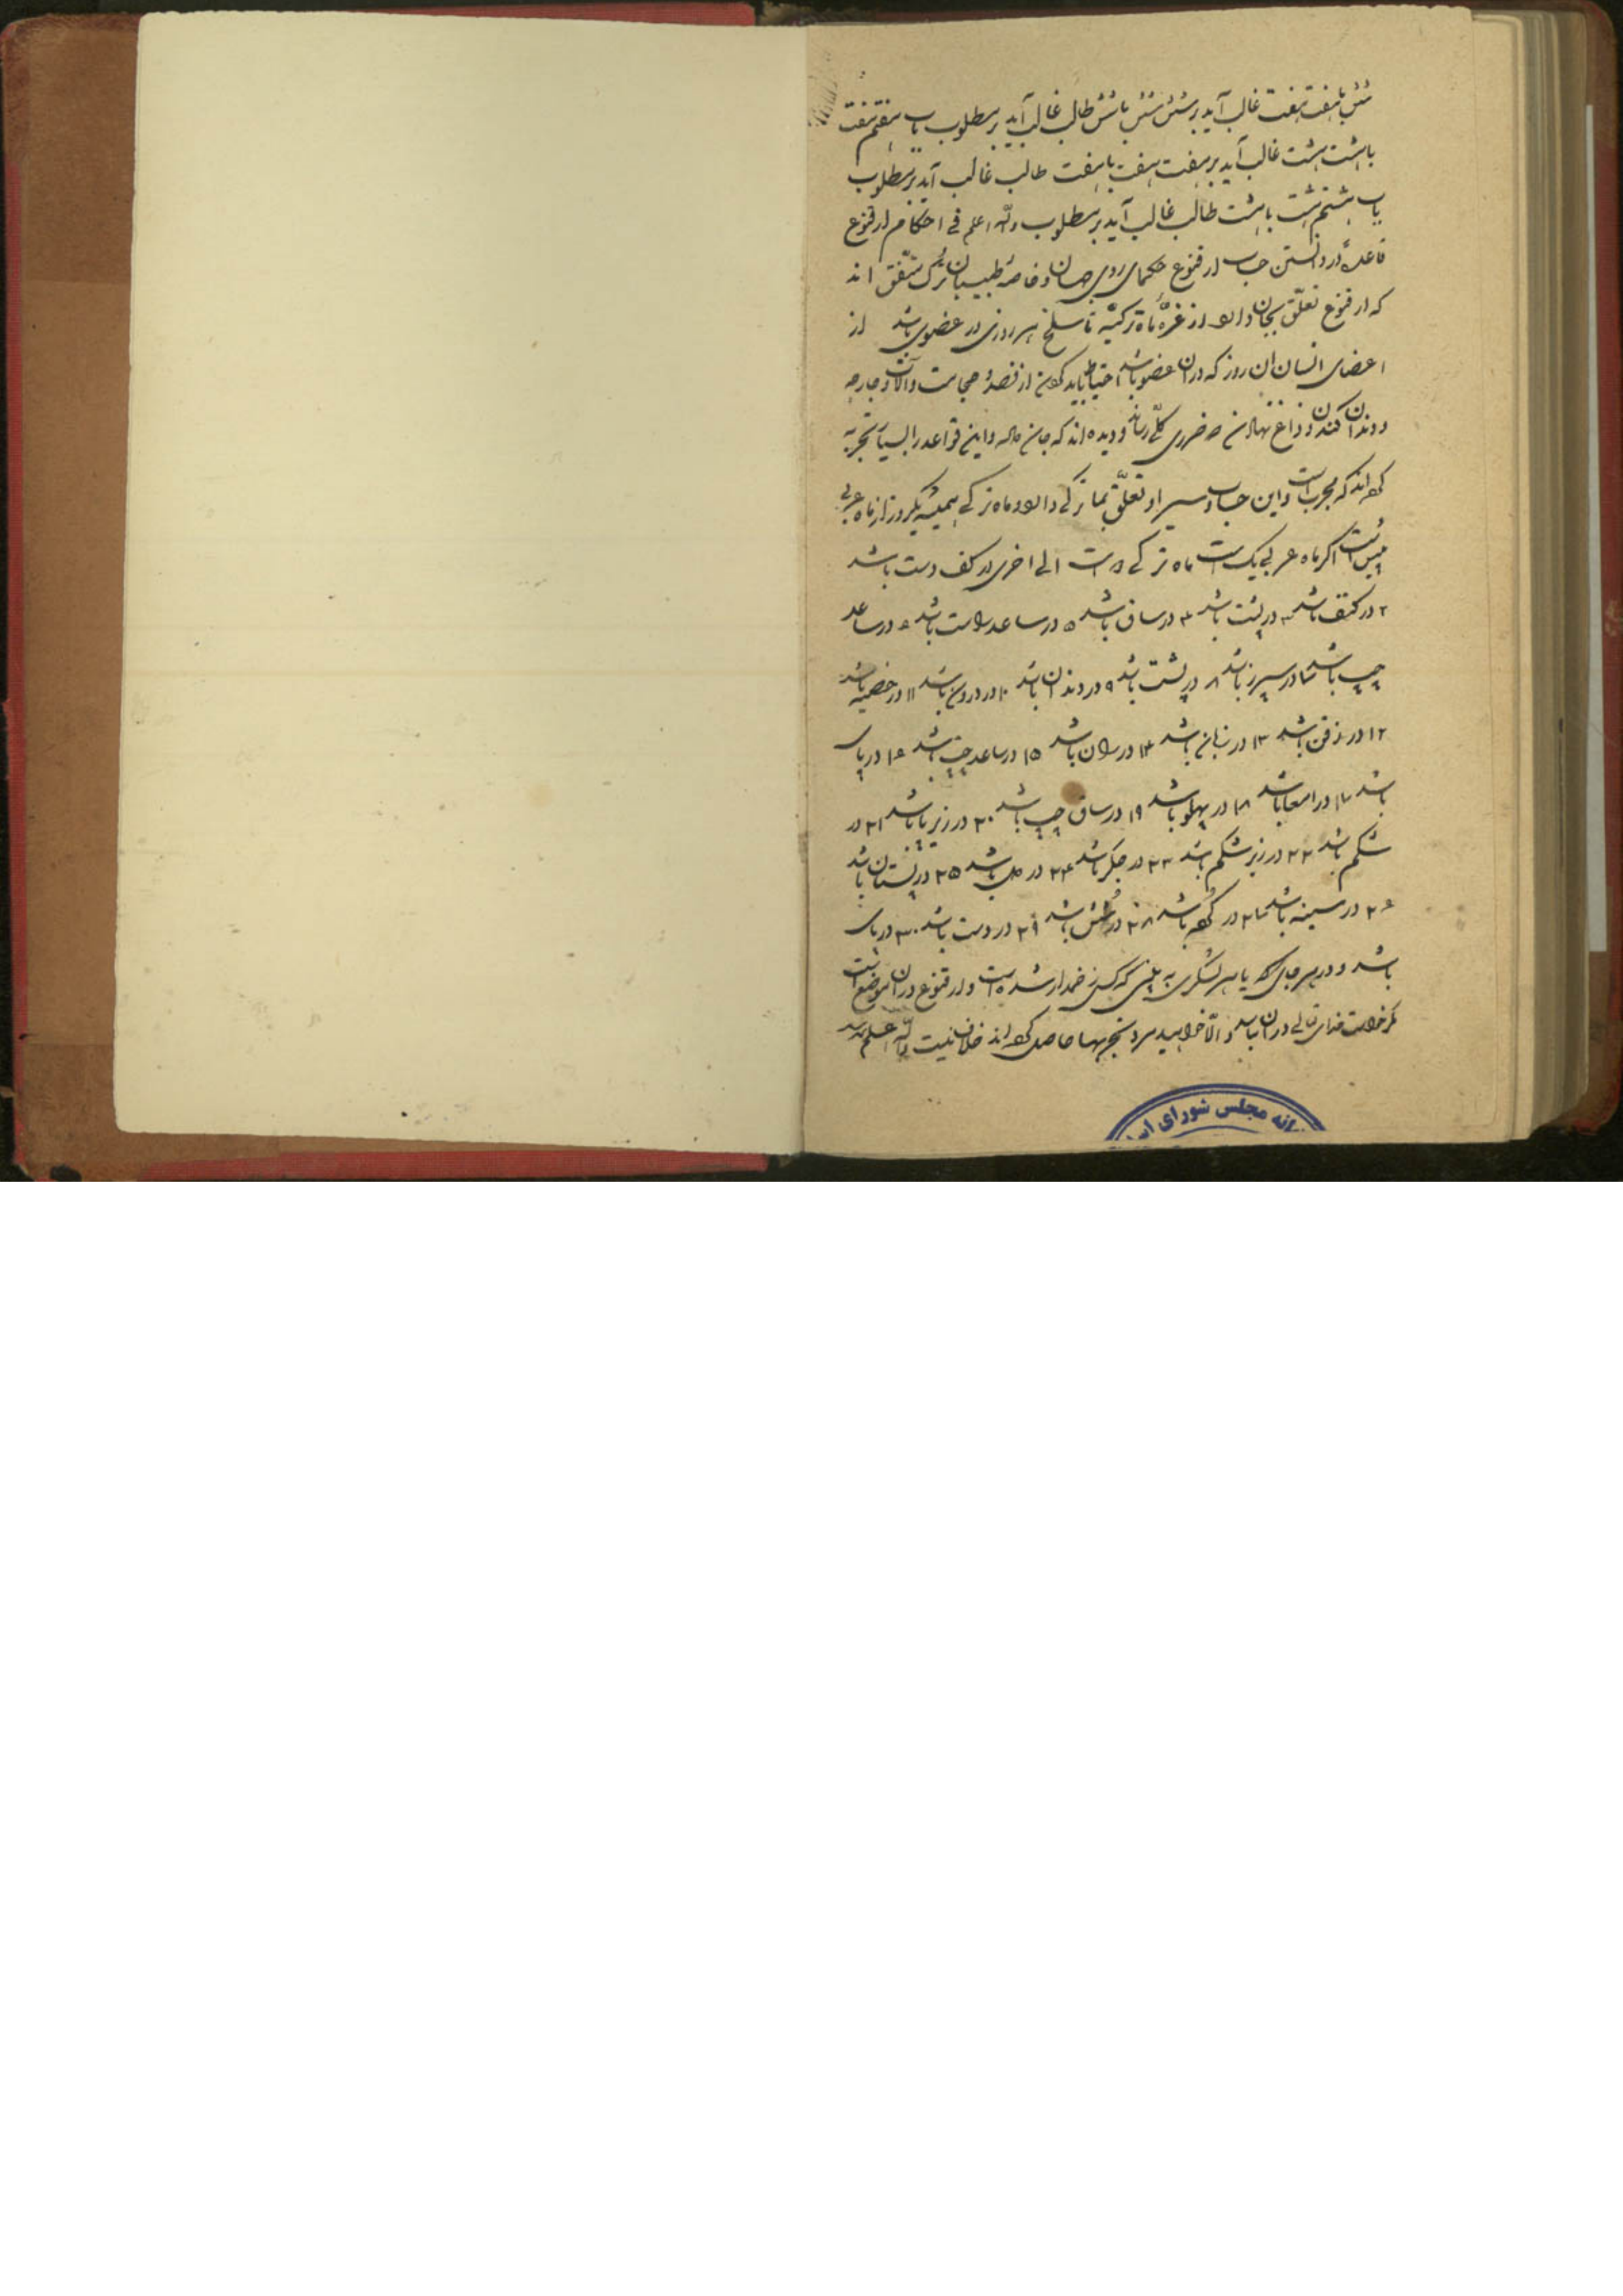 شش با هفت هفت غالب آید بر شش شش با شش طالب غالب آید بر مطلوب باب هفتم هفت
با هشت هشت غالب آید بر هفت هفت با هفت طالب غالب آید بر مطلوب
باب هشتم هشت با هشت طالب غالب آید بر مطلوب والله اعلم فی احکام ارقنوع
قاعده در دانستن حساب ارقنوع حکمای روی جهان و خاصه طبیبان ترک متفق اند
که ارقنوع تعلق بجان دارد از غره ماه ترکیه تا سلخ هر روزی در عضوی باشد از
اعضای انسان ان روز که در ان عضو باشد احتیاط باید کردن از فصد و حجامت و آلات و جارحه
و دندان کندن و داغ نهادن که ضرری کلی رساند و دیده اند که جان داده و این قواعد را بسیار تجربه
کرده اند که مجرب است و این حساب و سیر او تعلق بماه ترکی دارد و ماه ترکی همیشه یکروز از ماه عربی
پیش است اگر ماه عربی یک است ماه ترکی است الی اخری در کف دست باشد
۲ در کتف باشد ۳ در پشت باشد ۴ در ساق باشد ۵ در ساعد راست باشد ۶ در ساعد
چپ باشد ۷ در سپرز باشد ۸ در پشت باشد ۹ در دندان باشد ۱۰ در درون باشد ۱۱ در خصیه باشد
۱۲ در ذقن باشد ۱۳ در زبان باشد ۱۴ در ران باشد ۱۵ در ساعد چپ باشد ۱۶ در پای
باشد ۱۷ در امعا باشد ۱۸ در پهلو باشد ۱۹ در ساق چپ باشد ۲۰ در زیر پا باشد ۲۱ در
شکم باشد ۲۲ در زیر شکم باشد ۲۳ در جگر باشد ۲۴ در دل باشد ۲۵ در پستان باشد
۲۶ در سینه باشد ۲۷ در گرده باشد ۲۸ در شش باشد ۲۹ در دست باشد ۳۰ در پای
باشد و در هر جای که یا هر لشکری که کسی زخمدار شده است و ارقنوع در ان موضع است
مگر خواست خدای تعالی در ان باشد و الا خواهد مرد تجربها حاصل کرده اند خلاف نیست والله اعلم
خانه مجلس شورای